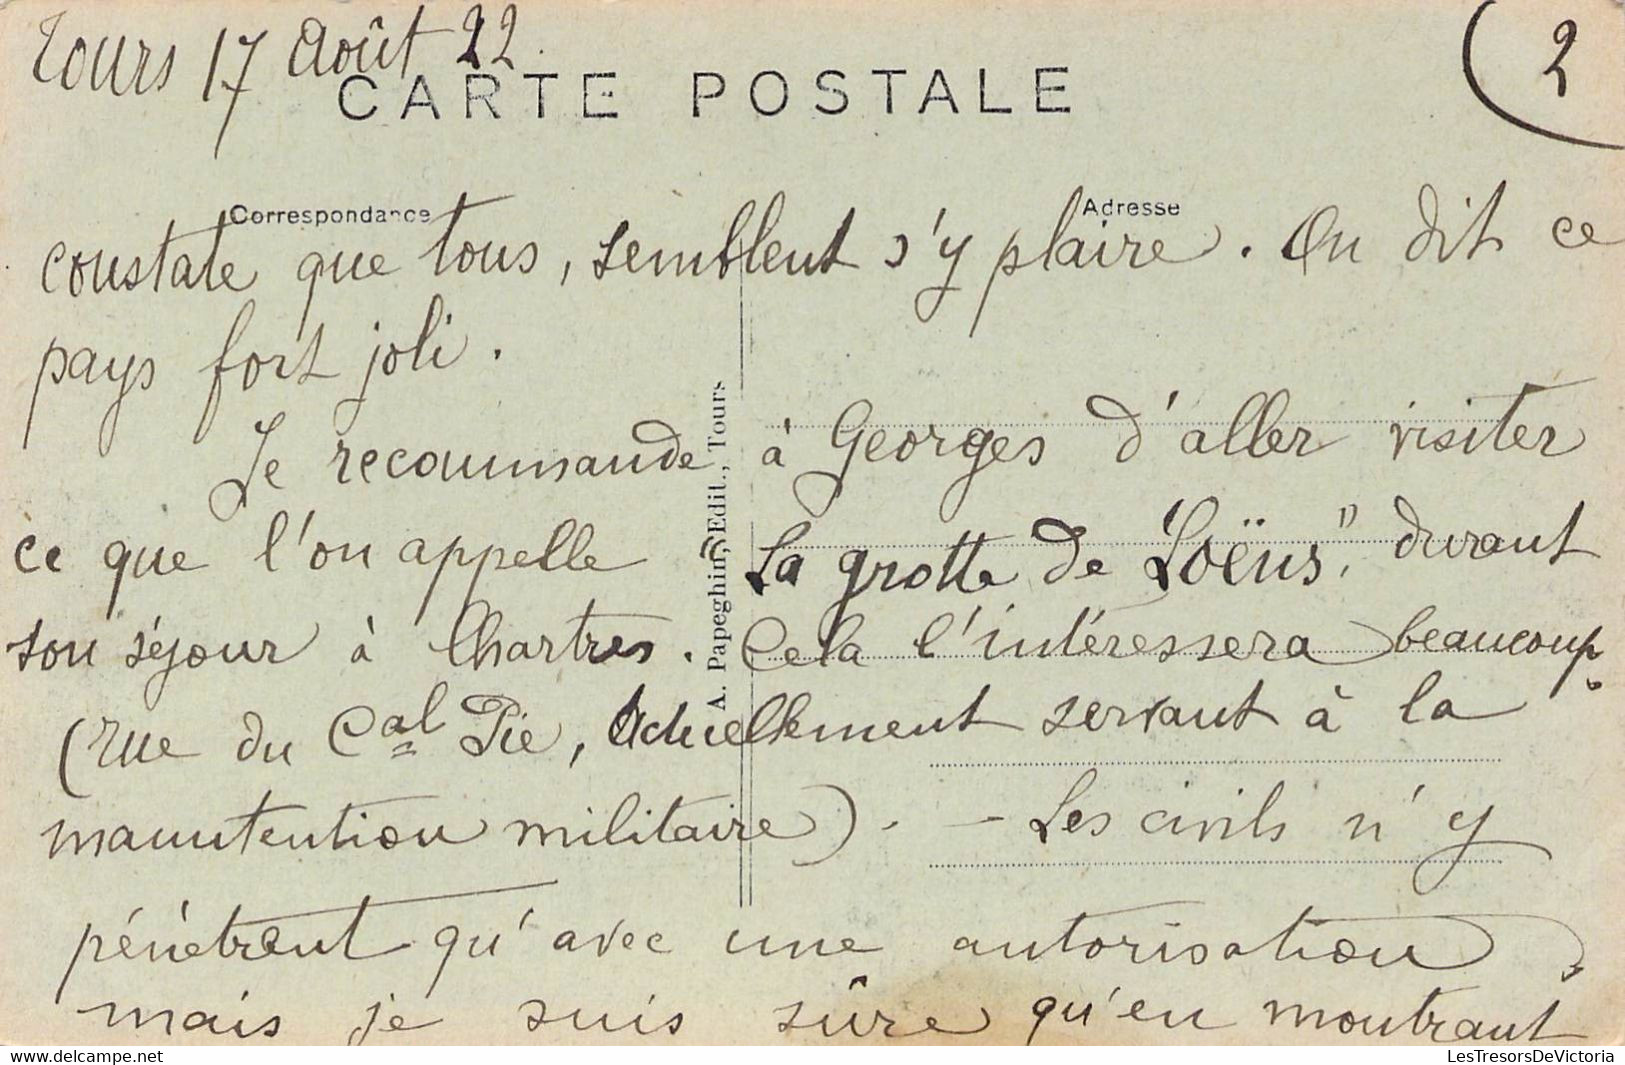 Tours 17 Août 22.
2
CARTE POSTALE
Correspondance
Adresse
constate que tous, semblent s'y plaire. On dit ce
pays fort joli.
Je recommande à Georges d'aller visiter
ce que l'on appelle la grotte de "Loëns", durant
son séjour à Chartres. Cela l'intéressera beaucoup.
(rue du Cal Pie, actuellement servant à la
manutention militaire). - Les civils n'y
pénètrent qu'avec une autorisation,
mais je suis sûre qu'en montrant
A. Papeghin, Edit., Tours
LesTresorsDeVictoria
delcampe.net